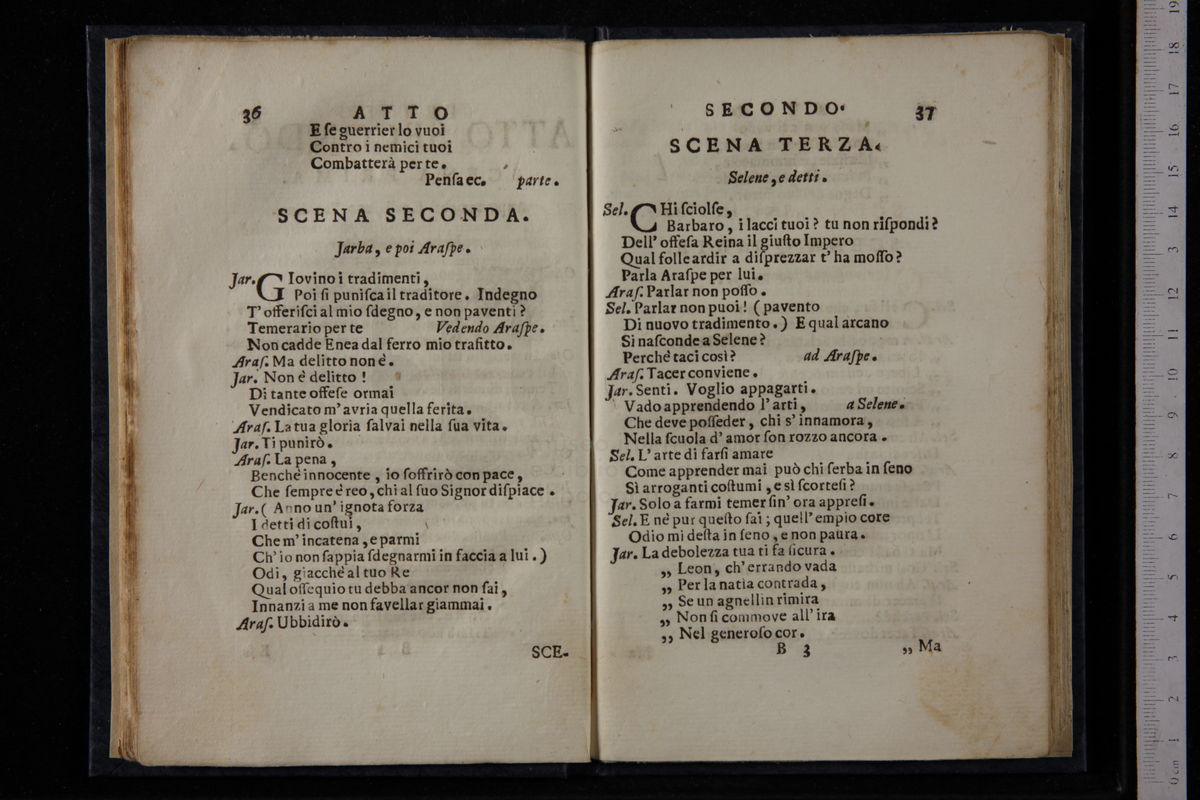 36 ATTO
E ſe guerrier lo vuoi
Contro i nemici tuoi
Combatterà per te.
Penſa ec. parte.
SCENA SECONDA.
Jarba, e poi Araſpe.
Jar. GIovino i tradimenti,
Poi ſi puniſca il traditore. Indegno
T' offeriſci al mio ſdegno, e non paventi?
Temerario per te Vedendo Araſpe.
Non cadde Enea dal ferro mio trafitto.
Araſ. Ma delitto non è.
Jar. Non è delitto!
Di tante offeſe ormai
Vendicato m' avria quella ferita.
Araſ. La tua gloria ſalvai nella ſua vita.
Jar. Ti punirò.
Araſ. La pena,
Benchè innocente, io ſoffrirò con pace,
Che ſempre è reo, chi al ſuo Signor diſpiace.
Jar. ( Anno un' ignota forza
I detti di coſtui,
Che m' incatena, e parmi
Ch' io non ſappia ſdegnarmi in faccia a lui. )
Odi, giacchè al tuo Re
Qual oſſequio tu debba ancor non ſai,
Innanzi a me non favellar giammai.
Araſ. Ubbidirò.
SCE-
SECONDO. 37
SCENA TERZA.
Selene, e detti.
Sel. CHi ſciolſe,
Barbaro, i lacci tuoi? tu non riſpondi?
Dell' offeſa Reina il giuſto Impero
Qual folle ardir a diſprezzar t' ha moſſo?
Parla Araſpe per lui.
Araſ. Parlar non poſſo.
Sel. Parlar non puoi! ( pavento
Di nuovo tradimento. ) E qual arcano
Si naſconde a Selene?
Perchè taci così? ad Araſpe.
Araſ. Tacer conviene.
Jar. Senti. Voglio appagarti.
Vado apprendendo l' arti, a Selene.
Che deve poſſeder, chi s' innamora,
Nella ſcuola d' amor ſon rozzo ancora.
Sel. L' arte di farſi amare
Come apprender mai può chi ſerba in ſeno
Sì arroganti coſtumi, e sì ſcorteſi?
Jar. Solo a farmi temer ſin' ora appreſi.
Sel. E nè pur queſto ſai; quell' empio core
Odio mi deſta in ſeno, e non paura.
Jar. La debolezza tua ti fa ſicura.
„ Leon, ch' errando vada
„ Per la natìa contrada,
„ Se un agnellin rimira
„ Non ſi commove all' ira
„ Nel generoſo cor.
B 3 „ Ma